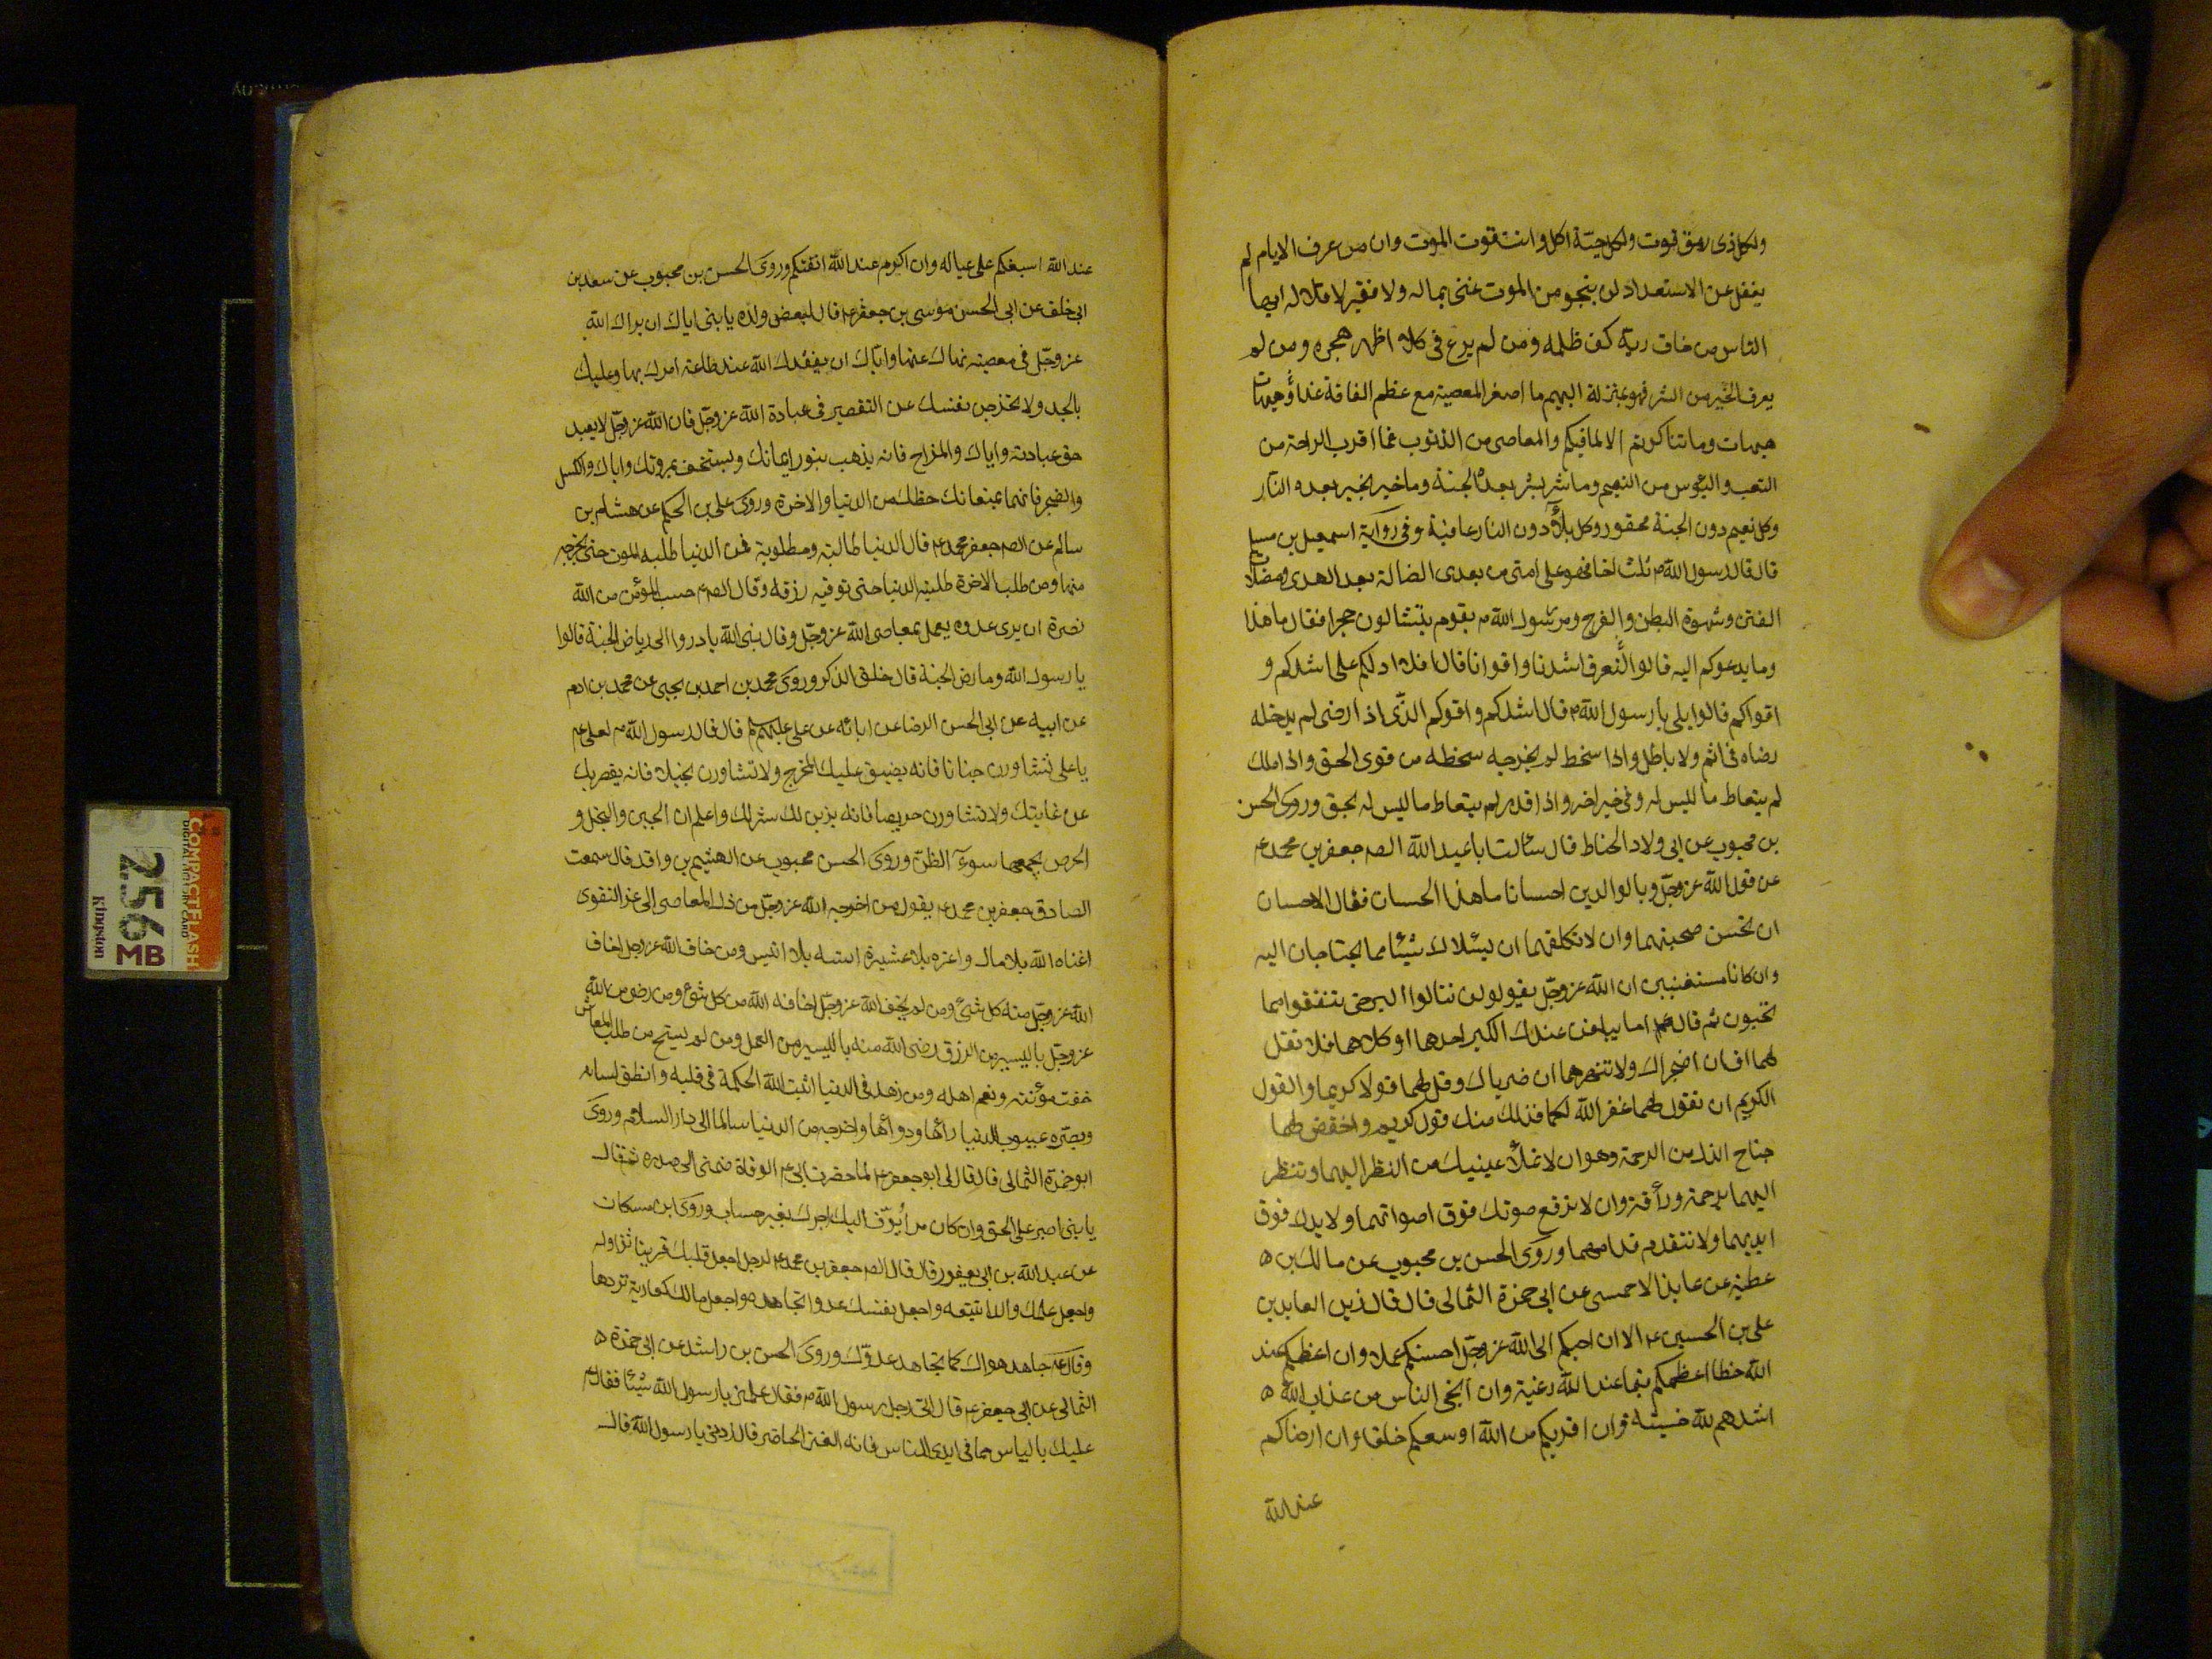 ولكل ذى رمق قوت ولكل حبّة اكل وانت قوت الموت وان من عرف الايام لم
يغفل عن الاستعداد لن ينجو من الموت غنى بماله ولا فقير لاقلاله ايها
الناس من خاف ربه كف ظلمه ومن لم يرع فى كلامه اظهر هجره ومن لم
يعرف الخير من الشر فهو بمنزلة البهيم ما اصغر المعصية مع عظم الفاقة غدا وهيهات
هيهات وما تناكرتم الا لما فيكم والمعاصى من الذنوب فما اقرب الراحة من
التعب والبؤس من النعيم وما شر بشر بعده الجنة وما خير بخير بعده النار
وكل نعيم دون الجنة محقور وكل بلاء دون النار عافية وفى رواية اسمعيل بن مسلم
قال قال رسول الله ص ثلث اخافهن على امتى من بعدى الضالة بعد الهدى ومضلات
الفتن وشهوة البطن والفرج ومر رسول الله ص بقوم يتشالون حجرا فقال ما هذا
وما يدعوكم اليه قالوا لنعرف اشدنا واقوانا قال افلا ادلكم على اشدكم و
اقواكم قالوا بلى يا رسول الله ص قال اشدكم واقوكم الذى اذا رضى لم يدخله
رضاه فى اثم ولا باطل واذا سخط لم يخرجه سخطه من قوى الحق واذا ملك
لم يتعاط ما ليس له وفى خبر اخر واذا قدر لم يتعاط ما ليس له بحق وروى الحسن
بن محبوب عن ابى ولاد الحناط قال سألت ابا عبد الله الصم جعفر بن محمد ع
عن قول الله عز وجل وبالوالدين احسانا ما هذا الحسان فقال الاحسان
ان تحسن صحبتهما وان لا تكلفهما ان يسئلاك شيئا مما يحتاجان اليه
وان كانا مستغنيين ان الله عز وجل يقول لن تنالوا البر حتى تنفقوا مما
تحبون ثم قال ع اما يبلغن عندك الكبر احدهما او كلاهما فلا تقل
لهما اف ان اضجراك ولا تنهرهما ان ضرباك وقل لهما قولا كريما والقول
الكريم ان تقول لهما غفر الله لكما فذلك منك قول كريم واخفض لهما
جناح الذل من الرحمة وهو ان لا تملأ عينيك من النظر اليهما وتنظر
اليهما برحمة ورأفة وان لا ترفع صوتك فوق اصواتهما ولا يدك فوق
ايديهما ولا تتقدم قدامهما وروى الحسن بن محبوب عن مالك بن ه
عطية عن عايذ الاحمسى عن ابى حمزة الثمالى قال قال زين العابدين
على بن الحسين ع الا ان احبكم الى الله عز وجل احسنكم عملا وان اعظمكم عند
الله حظا اعظمكم فيما عند الله رغبة وان انجى الناس من عذاب الله ه
اشدهم لله خشية وان اقربكم من الله اوسعكم خلقا وان ارضاكم
عند الله
عند الله اسبغكم على عياله وان اكرم عند الله اتقيكم وروى الحسن بن محبوب عن سعد بن
ابى خلف عن ابى الحسن موسى بن جعفر ع قال لبعض ولده يا بنى اياك ان يراك الله
عز وجل فى معصية نهاك عنها واياك ان يفقدك الله عند طاعة امرك بها وعليك
بالجد ولا تخرجن نفسك عن التقصير فى عبادة الله عز وجل فان الله عز وجل لا يعبد
حق عبادته واياك والمزاح فانه يذهب بنور ايمانك ويستخف بمروتك واياك والكسل
والضجر فانهما يمنعانك حظك من الدنيا والاخرة وروى على بن الحكم عن هشام بن
سالم عن الصم جعفر محمد ع قال الدنيا طالبة ومطلوبة فمن الدنيا طلبه الموت حتى يخرجه
منها ومن طلب الاخرة طلبته الدنيا حتى توفيه رزقه وقال الصم ع حسب المؤمن من الله
نصرة ان يرى عدوه يعمل بمعاصى الله عز وجل وقال نبى الله بادروا الى رياض الجنة قالوا
يا رسول الله وما رياض الجنة قال خلق الذكر وروى محمد بن احمد بن يحيى عن محمد بن ادم
عن ابيه عن ابى الحسن الرضا عن ابائه عن على عليهم لم قال قال رسول الله ص لعلى ع
يا على تشاورن جبانا فانه يضيق عليك المخرج ولا تشاورن بخيلا فانه يقصر بك
عن غايتك ولا تشاورن حريصا فانه يزين لك شرالك واعلم ان الجبن والبخل و
الحرص يجمعها سوء الظن وروى الحسن محبوب عن الهشيم بن واقد قال سمعت
الصادق جعفر بن محمد ع يقول من اخرجه الله عز وجل من ذل المعاصى الى عز التقوى
اغناه الله بلا مال واعزه بلا عشيرة انسه بلا انيس ومن خاف الله عز وجل اخاف
الله عز وجل منه كل شئ ومن لم يخف الله عز وجل اخافه الله من كل شئ ومن رضى من الله
عز وجل باليسير من الرزق رضى الله منه باليسير من العمل ومن لم يستح من طلب المعاش
خفت مؤنته ونعم اهله ومن زهد فى الدنيا اثبت الله الحكمة فى قلبه وانطق لسانه
وبصره عيوب الدنيا دائها ودوائها واخرجه من الدنيا سالما الى دار السلام وروى
ابو حمزة الثمالى قال قال لى ابو جعفر ع لما حضرت ابى ع الوفاة ضمنى الى صدره ثم قال
يا بنى اصبر على الحق وان كان مرا يوف اليك اجرك بغير حساب وروى ابن مسكان
عن عبد الله بن ابى يعفور قال قال الصم جعفر بن محمد ع لرجل اجعل قلبك قرينا تزاوله
واجعل علمك والدا تتبعه واجعل نفسك عدوا تجاهده واجعل مالك كعارية تردها
وقال ع جاهد هواك كما تجاهد عدوك وروى الحسن بن راشد عن ابى حمزة ه
الثمالى عن ابى جعفر ع قال اتى رجل رسول الله ص فقال علمنى يا رسول الله شيئا فقال ع
عليك بالياس مما فى ايدى الناس فانه الغنى الحاضر قال زدنى يا رسول الله قال
COMPACTFLASH
256
MB
Kingston